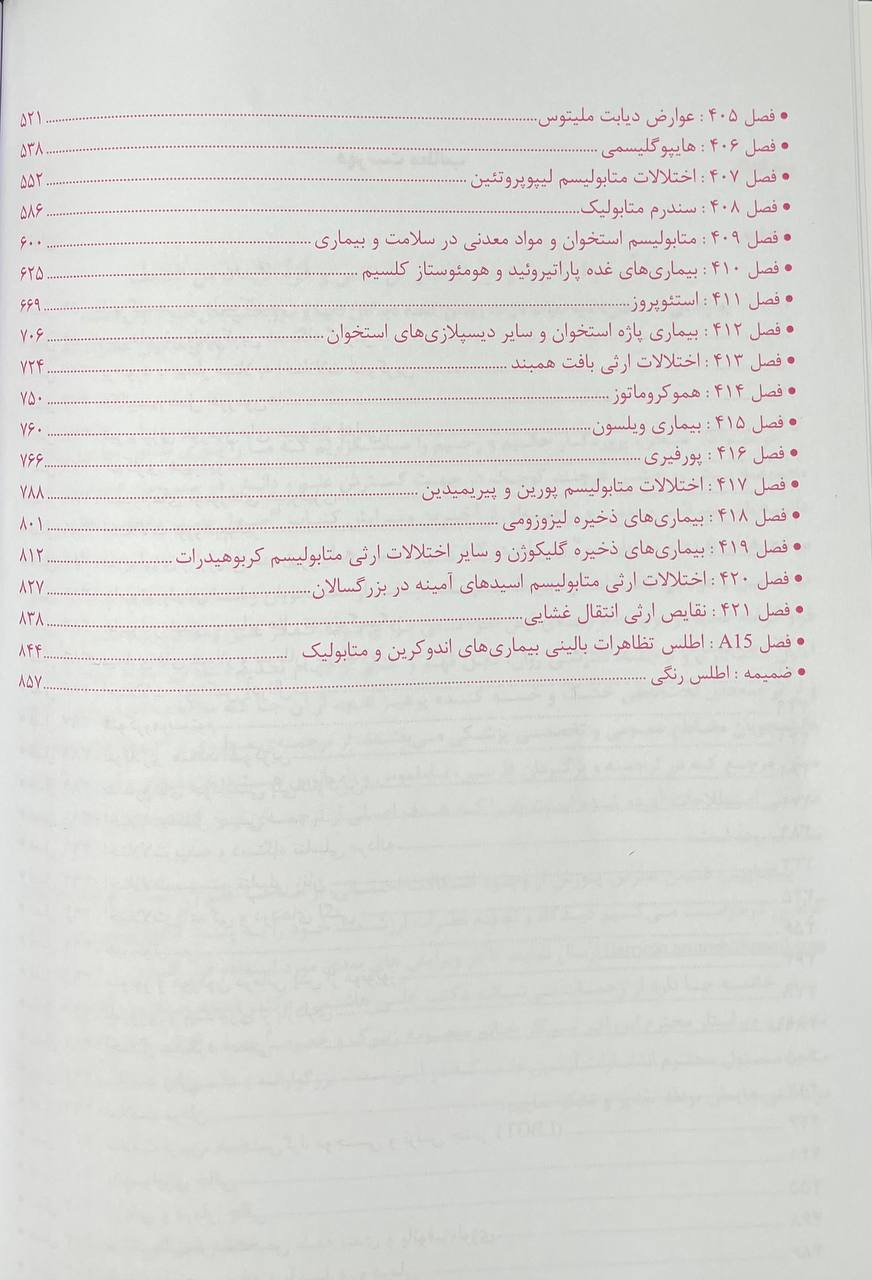 • فصل ۴۰۵ : عوارض دیابت ملیتوس ........ ۵۲۱
• فصل ۴۰۶ : هایپوگلیسمی ........ ۵۳۸
• فصل ۴۰۷ : اختلالات متابولیسم لیپوپروتئین ........ ۵۵۲
• فصل ۴۰۸ : سندرم متابولیک ........ ۵۸۶
• فصل ۴۰۹ : متابولیسم استخوان و مواد معدنی در سلامت و بیماری ........ ۶۰۰
• فصل ۴۱۰ : بیماری‌های غده پاراتیروئید و هومئوستاز کلسیم ........ ۶۲۵
• فصل ۴۱۱ : استئوپروز ........ ۶۶۹
• فصل ۴۱۲ : بیماری پاژه استخوان و سایر دیسپلازی‌های استخوان ........ ۷۰۶
• فصل ۴۱۳ : اختلالات ارثی بافت همبند ........ ۷۲۴
• فصل ۴۱۴ : هموکروماتوز ........ ۷۵۰
• فصل ۴۱۵ : بیماری ویلسون ........ ۷۶۰
• فصل ۴۱۶ : پورفیری ........ ۷۶۶
• فصل ۴۱۷ : اختلالات متابولیسم پورین و پیریمیدین ........ ۷۸۸
• فصل ۴۱۸ : بیماری‌های ذخیره لیزوزومی ........ ۸۰۱
• فصل ۴۱۹ : بیماری‌های ذخیره گلیکوژن و سایر اختلالات ارثی متابولیسم کربوهیدرات ........ ۸۱۲
• فصل ۴۲۰ : اختلالات ارثی متابولیسم اسیدهای آمینه در بزرگسالان ........ ۸۲۷
• فصل ۴۲۱ : نقایص ارثی انتقال غشایی ........ ۸۳۸
• فصل A15 : اطلس تظاهرات بالینی بیماری‌های اندوکرین و متابولیک ........ ۸۴۴
• ضمیمه : اطلس رنگی ........ ۸۵۷